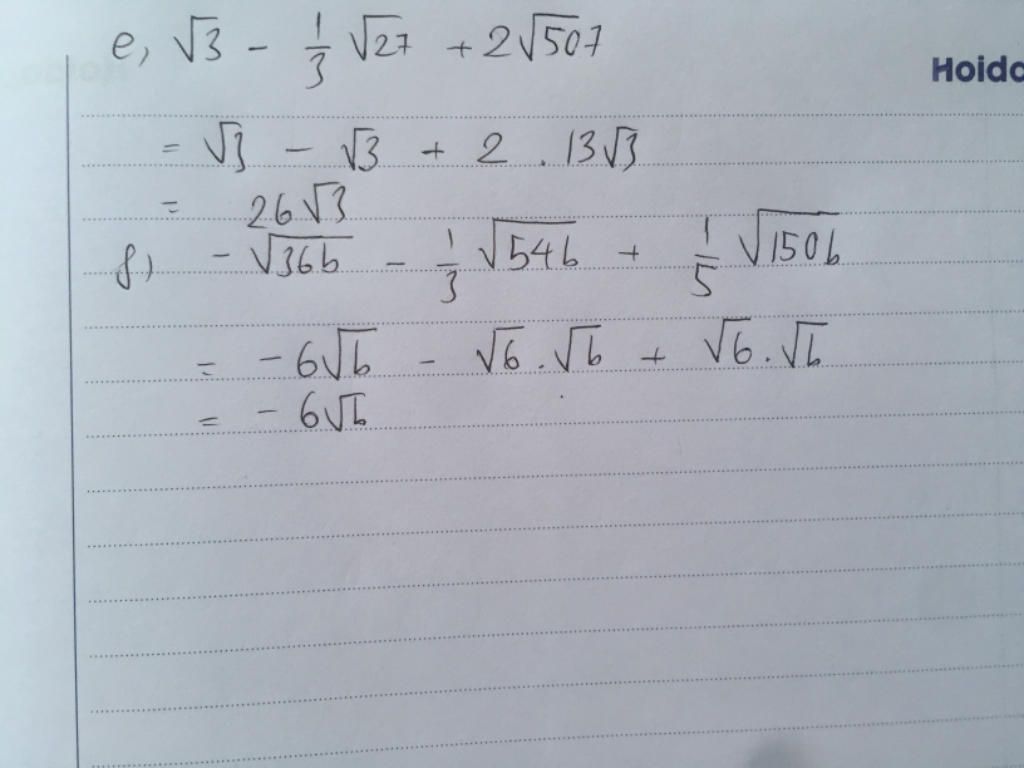 e, √3 - 1/3 √27 + 2√507
Hoidc
= √3 - √3 + 2 . 13√3
= 26√3
f) -√36b - 1/3 √54b + 1/5 √150b
= -6√b - √6.√b + √6.√b
= -6√b